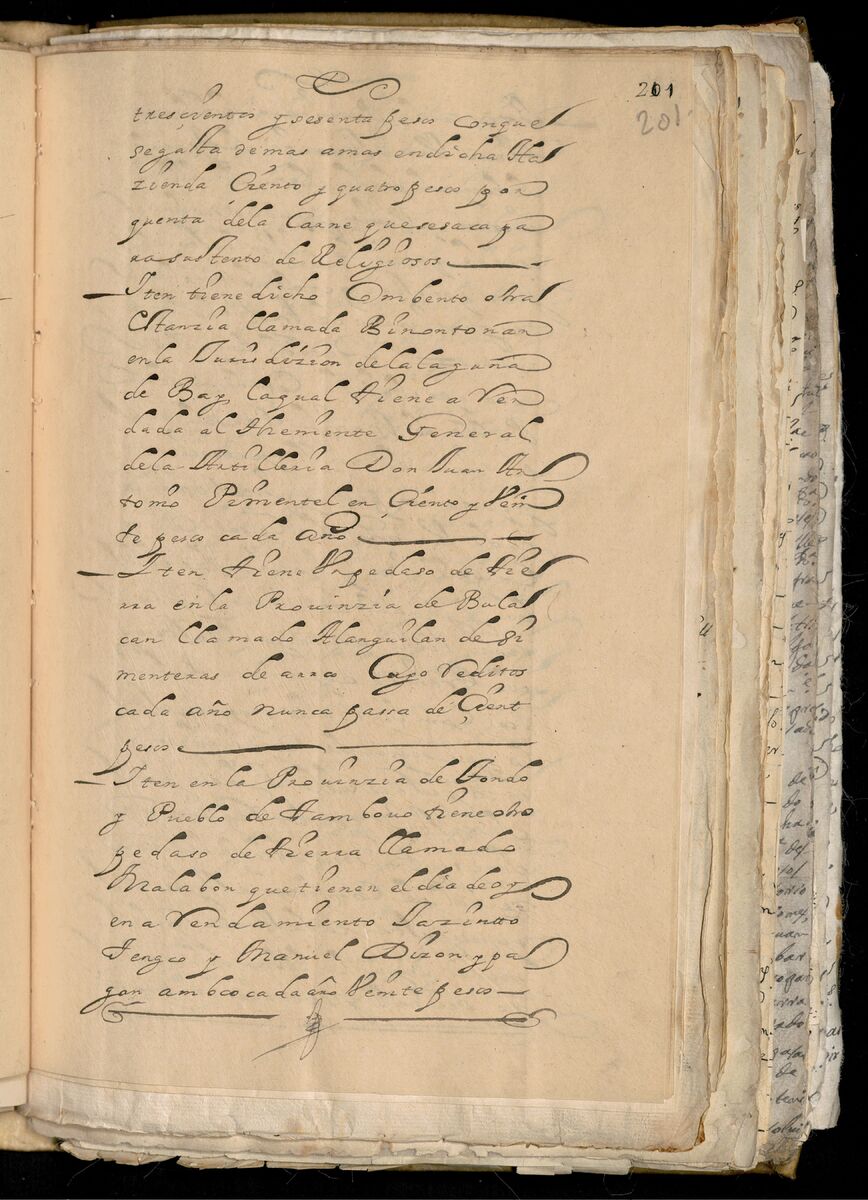 201
201
trescientos y sesenta pesos conque
se gasta demas amas en dicha Ha
zienda Ciento y quatro pesos por
quenta dela Carne que se saca pa
ra sustento de Religiosos
Iten tiene dicho Combento otra
Estanzia llamada Binontoñan
en la Jurisdizion de la laguna
de Bay laqual tiene a Ren
dada al theniente General
dela Artilleria Don Juan An
tonio Pimentel en Ciento y Vein
te pesos cada año
Iten tiene Un pedaso de tie
rra en la Prouinzia de Bula
can llamado Alanguilan de si
menteras de arros Cuyo Reditos
cada año nunca passa de Cient
pesos
Iten en la Prouinzia de tondo
y Pueblo de tambouo tiene otro
pedaso de tierra llamado
Malabon que tienen el dia de oy
en a Rendamiento Jazintto
Tengco y Manuel Dizon y pa
gan ambos cada año Veinte pesos